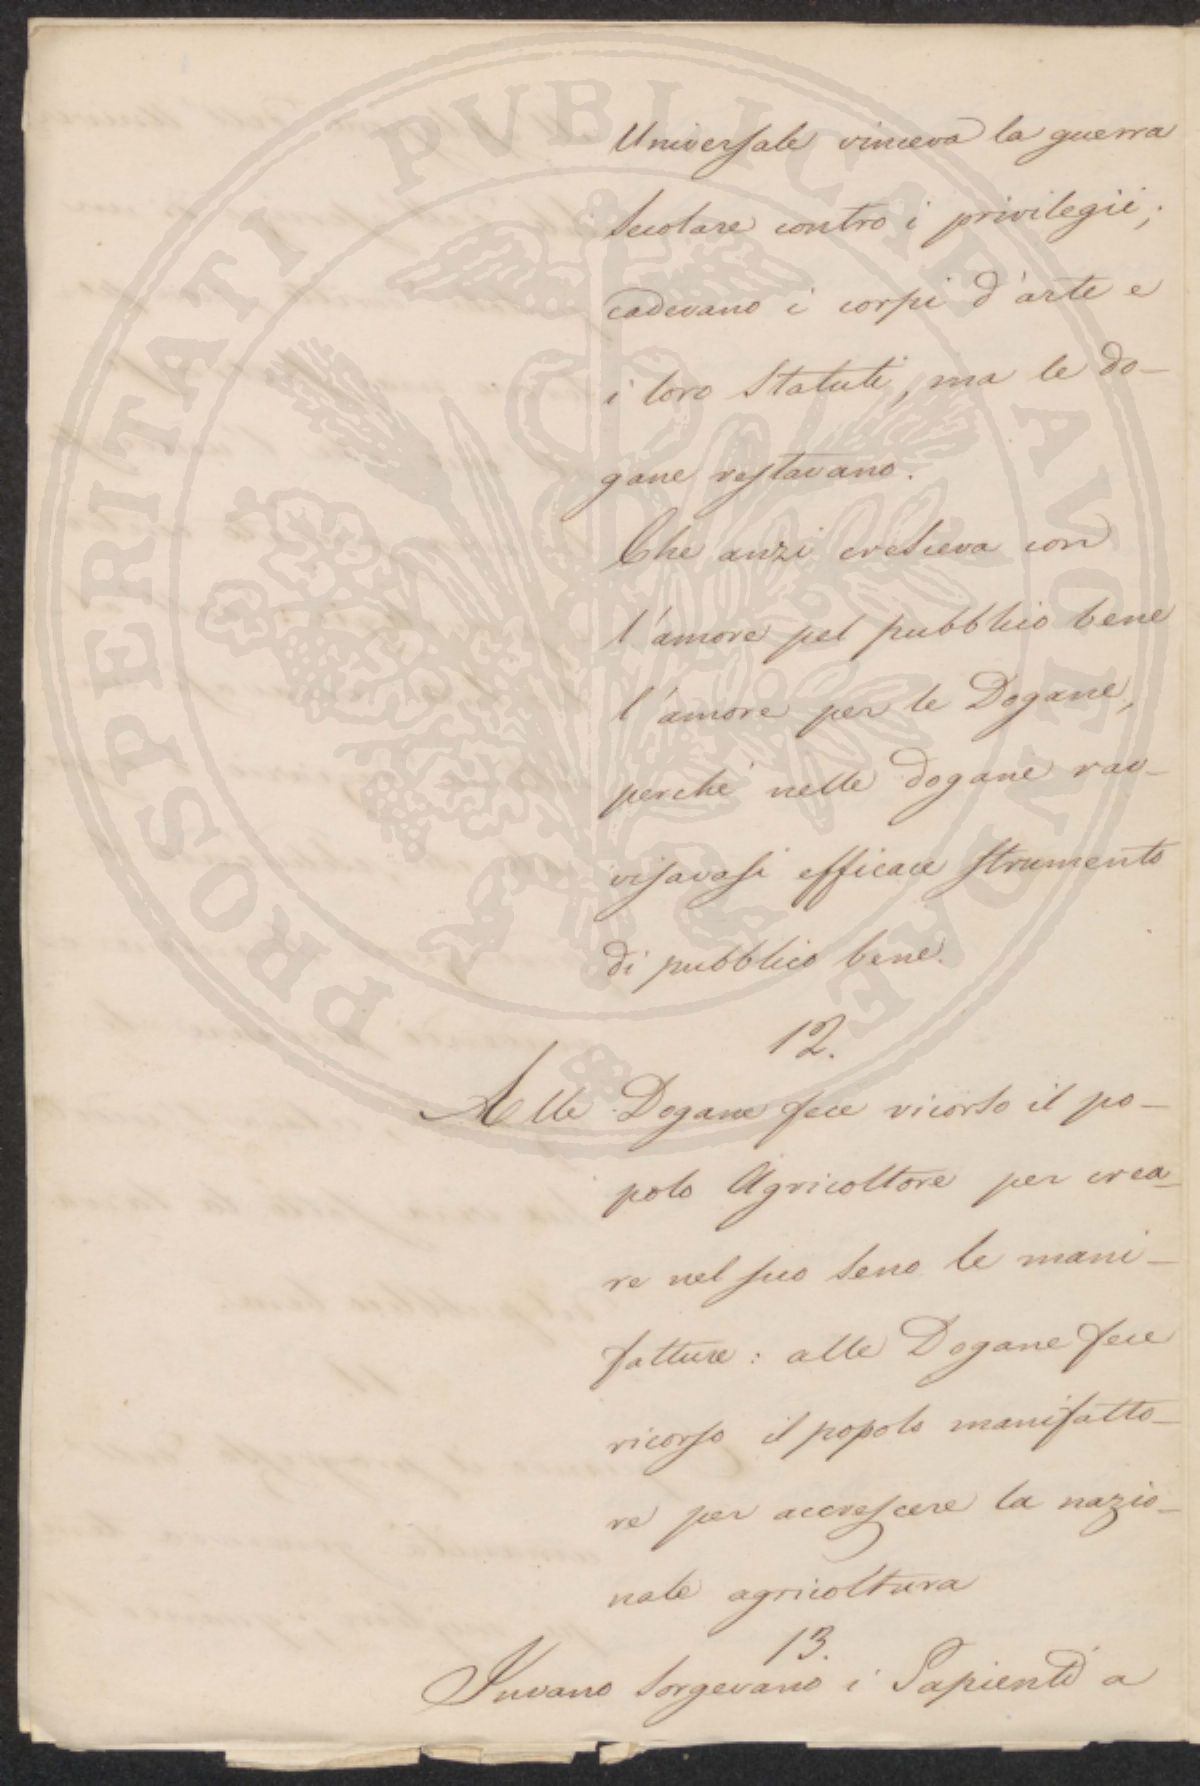 Universale vinceva la guerra
secolare contro i privilegii;
cadevano i corpi d'arte e
i loro Statuti, ma le do-
gane restavano.
Che anzi cresceva con
l'amore pel pubblico bene
l'amore per le Dogane,
perché nelle dogane rav-
visavasi efficace strumento
di pubblico bene.
12.
Alle Dogane fece ricorso il po-
polo Agricoltore per crea-
re nel suo seno le mani-
fatture: alle Dogane fece
ricorso il popolo manifatto-
re per accrescere la nazio-
nale agricoltura
13.
Invano sorgevano i Sapienti a
PROSPERITATI PUBLICAE AVGENDAE